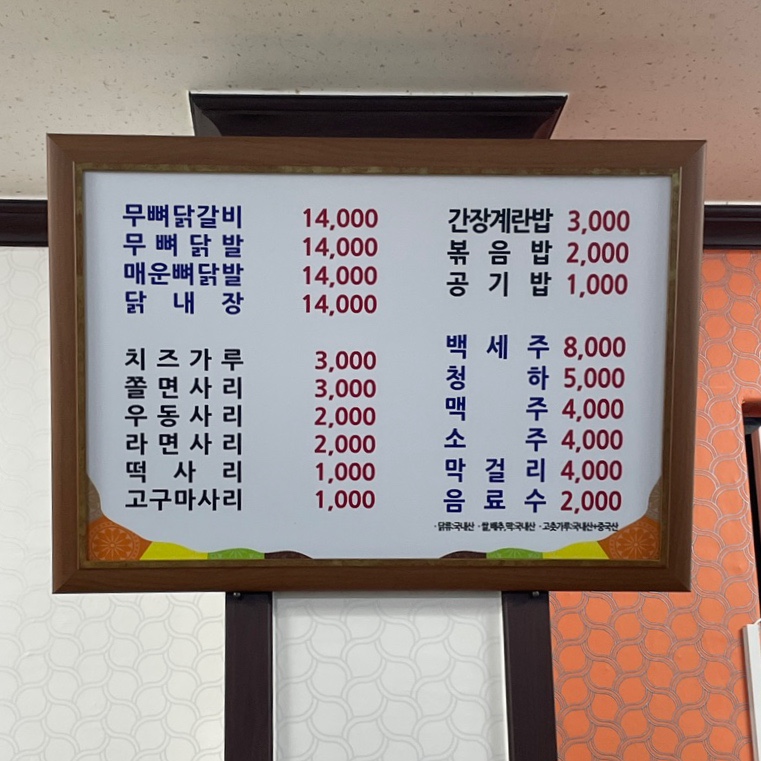 무뼈닭갈비 14,000
무뼈닭발 14,000
매운뼈닭발 14,000
닭내장 14,000
치즈가루 3,000
쫄면사리 3,000
우동사리 2,000
라면사리 2,000
떡사리 1,000
고구마사리 1,000
간장계란밥 3,000
볶음밥 2,000
공기밥 1,000
백세주 8,000
청하 5,000
맥주 4,000
소주 4,000
막걸리 4,000
음료수 2,000
·닭류:국내산 ·쌀,배추,떡:국내산 ·고춧가루:국내산+중국산